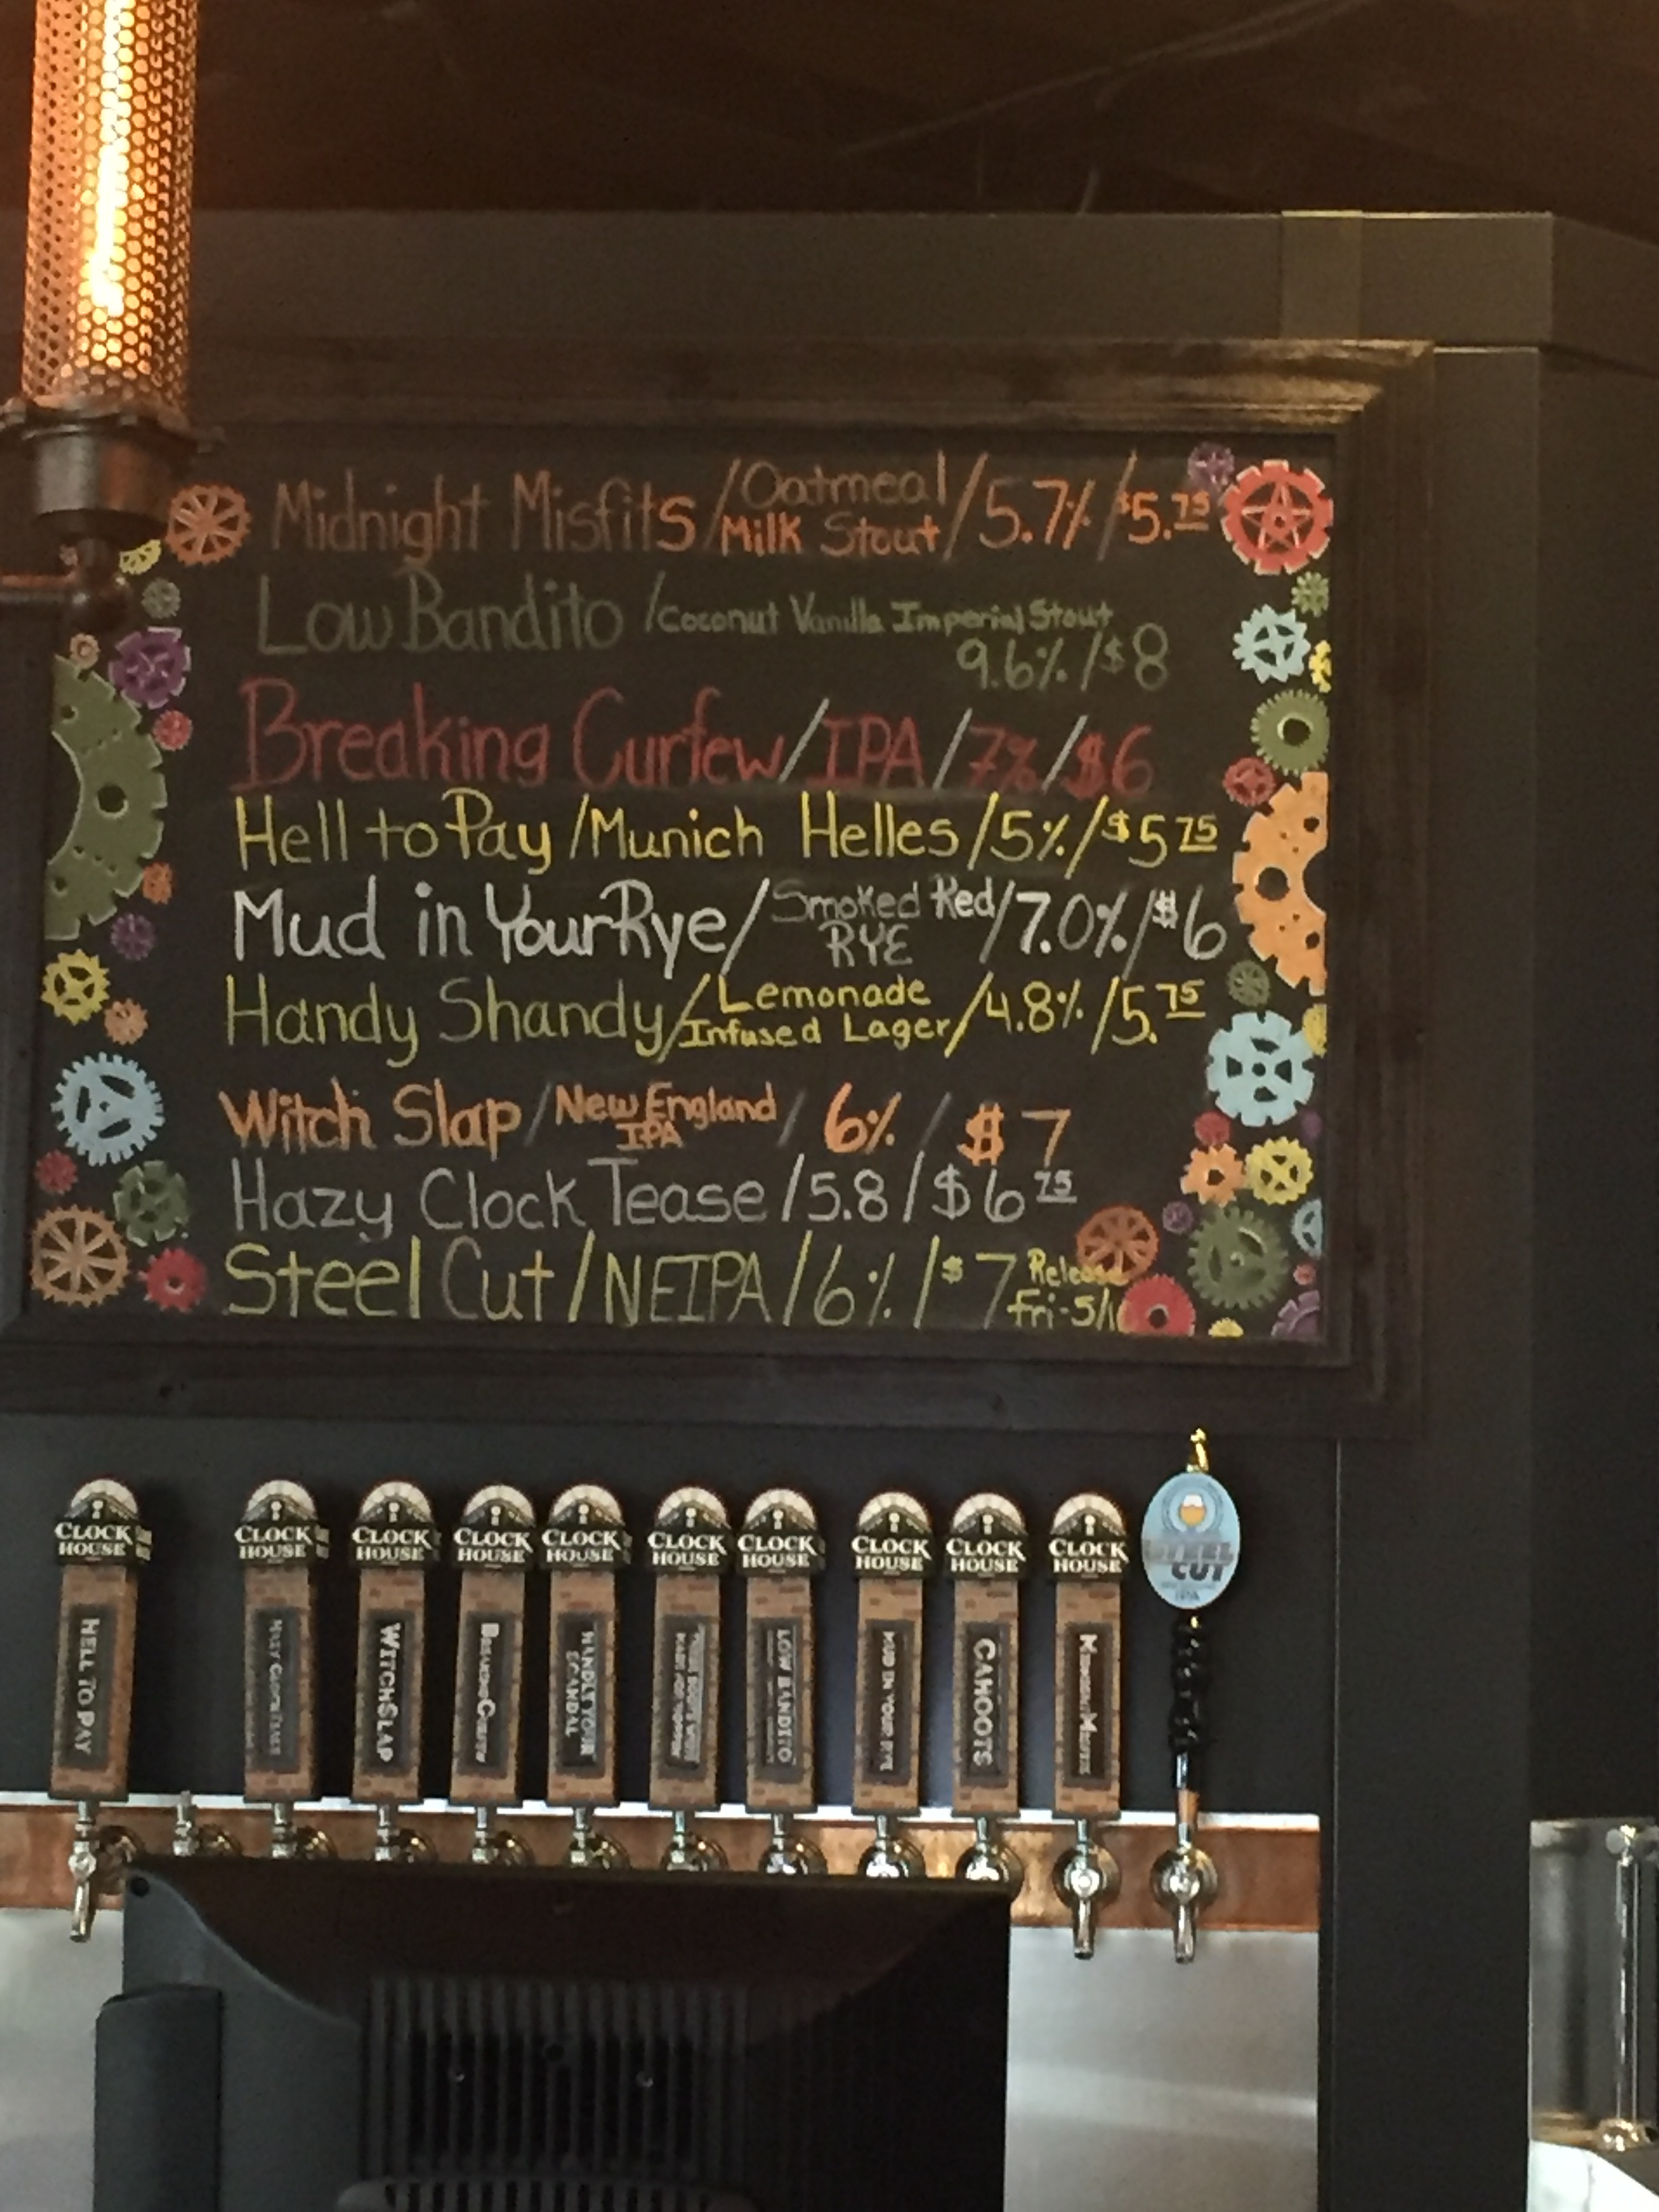 Midnight Misfits / Oatmeal Milk Stout / 5.7% / $5.75
Low Bandito / Coconut Vanilla Imperial Stout
9.6% / $8
Breaking Curfew / IPA / 7% / $6
Hell to Pay / Munich Helles / 5% / $5 75
Mud in Your Rye / Smoked Red RYE / 7.0% / $6
Handy Shandy / Lemonade Infused Lager / 4.8% / 5.75
Witch Slap / New England IPA / 6% / $7
Hazy Clock Tease / 5.8 / $6 75
Steel Cut / NEIPA / 6% / $7 Release Fri-5/1
CLOCK HOUSE
HELL TO PAY
CLOCK HOUSE
HAZY CLOCK TEASE
CLOCK HOUSE
WITCHSLAP
CLOCK HOUSE
BREAKING CURFEW
CLOCK HOUSE
HANDLE YOUR SCANDAL
CLOCK HOUSE
CLOCK HOUSE
LOW BANDITO
CLOCK HOUSE
MUD IN YOUR RYE
CLOCK HOUSE
CAHOOTS
CLOCK HOUSE
MIDNIGHT MISFITS
STEEL CUT
IPA